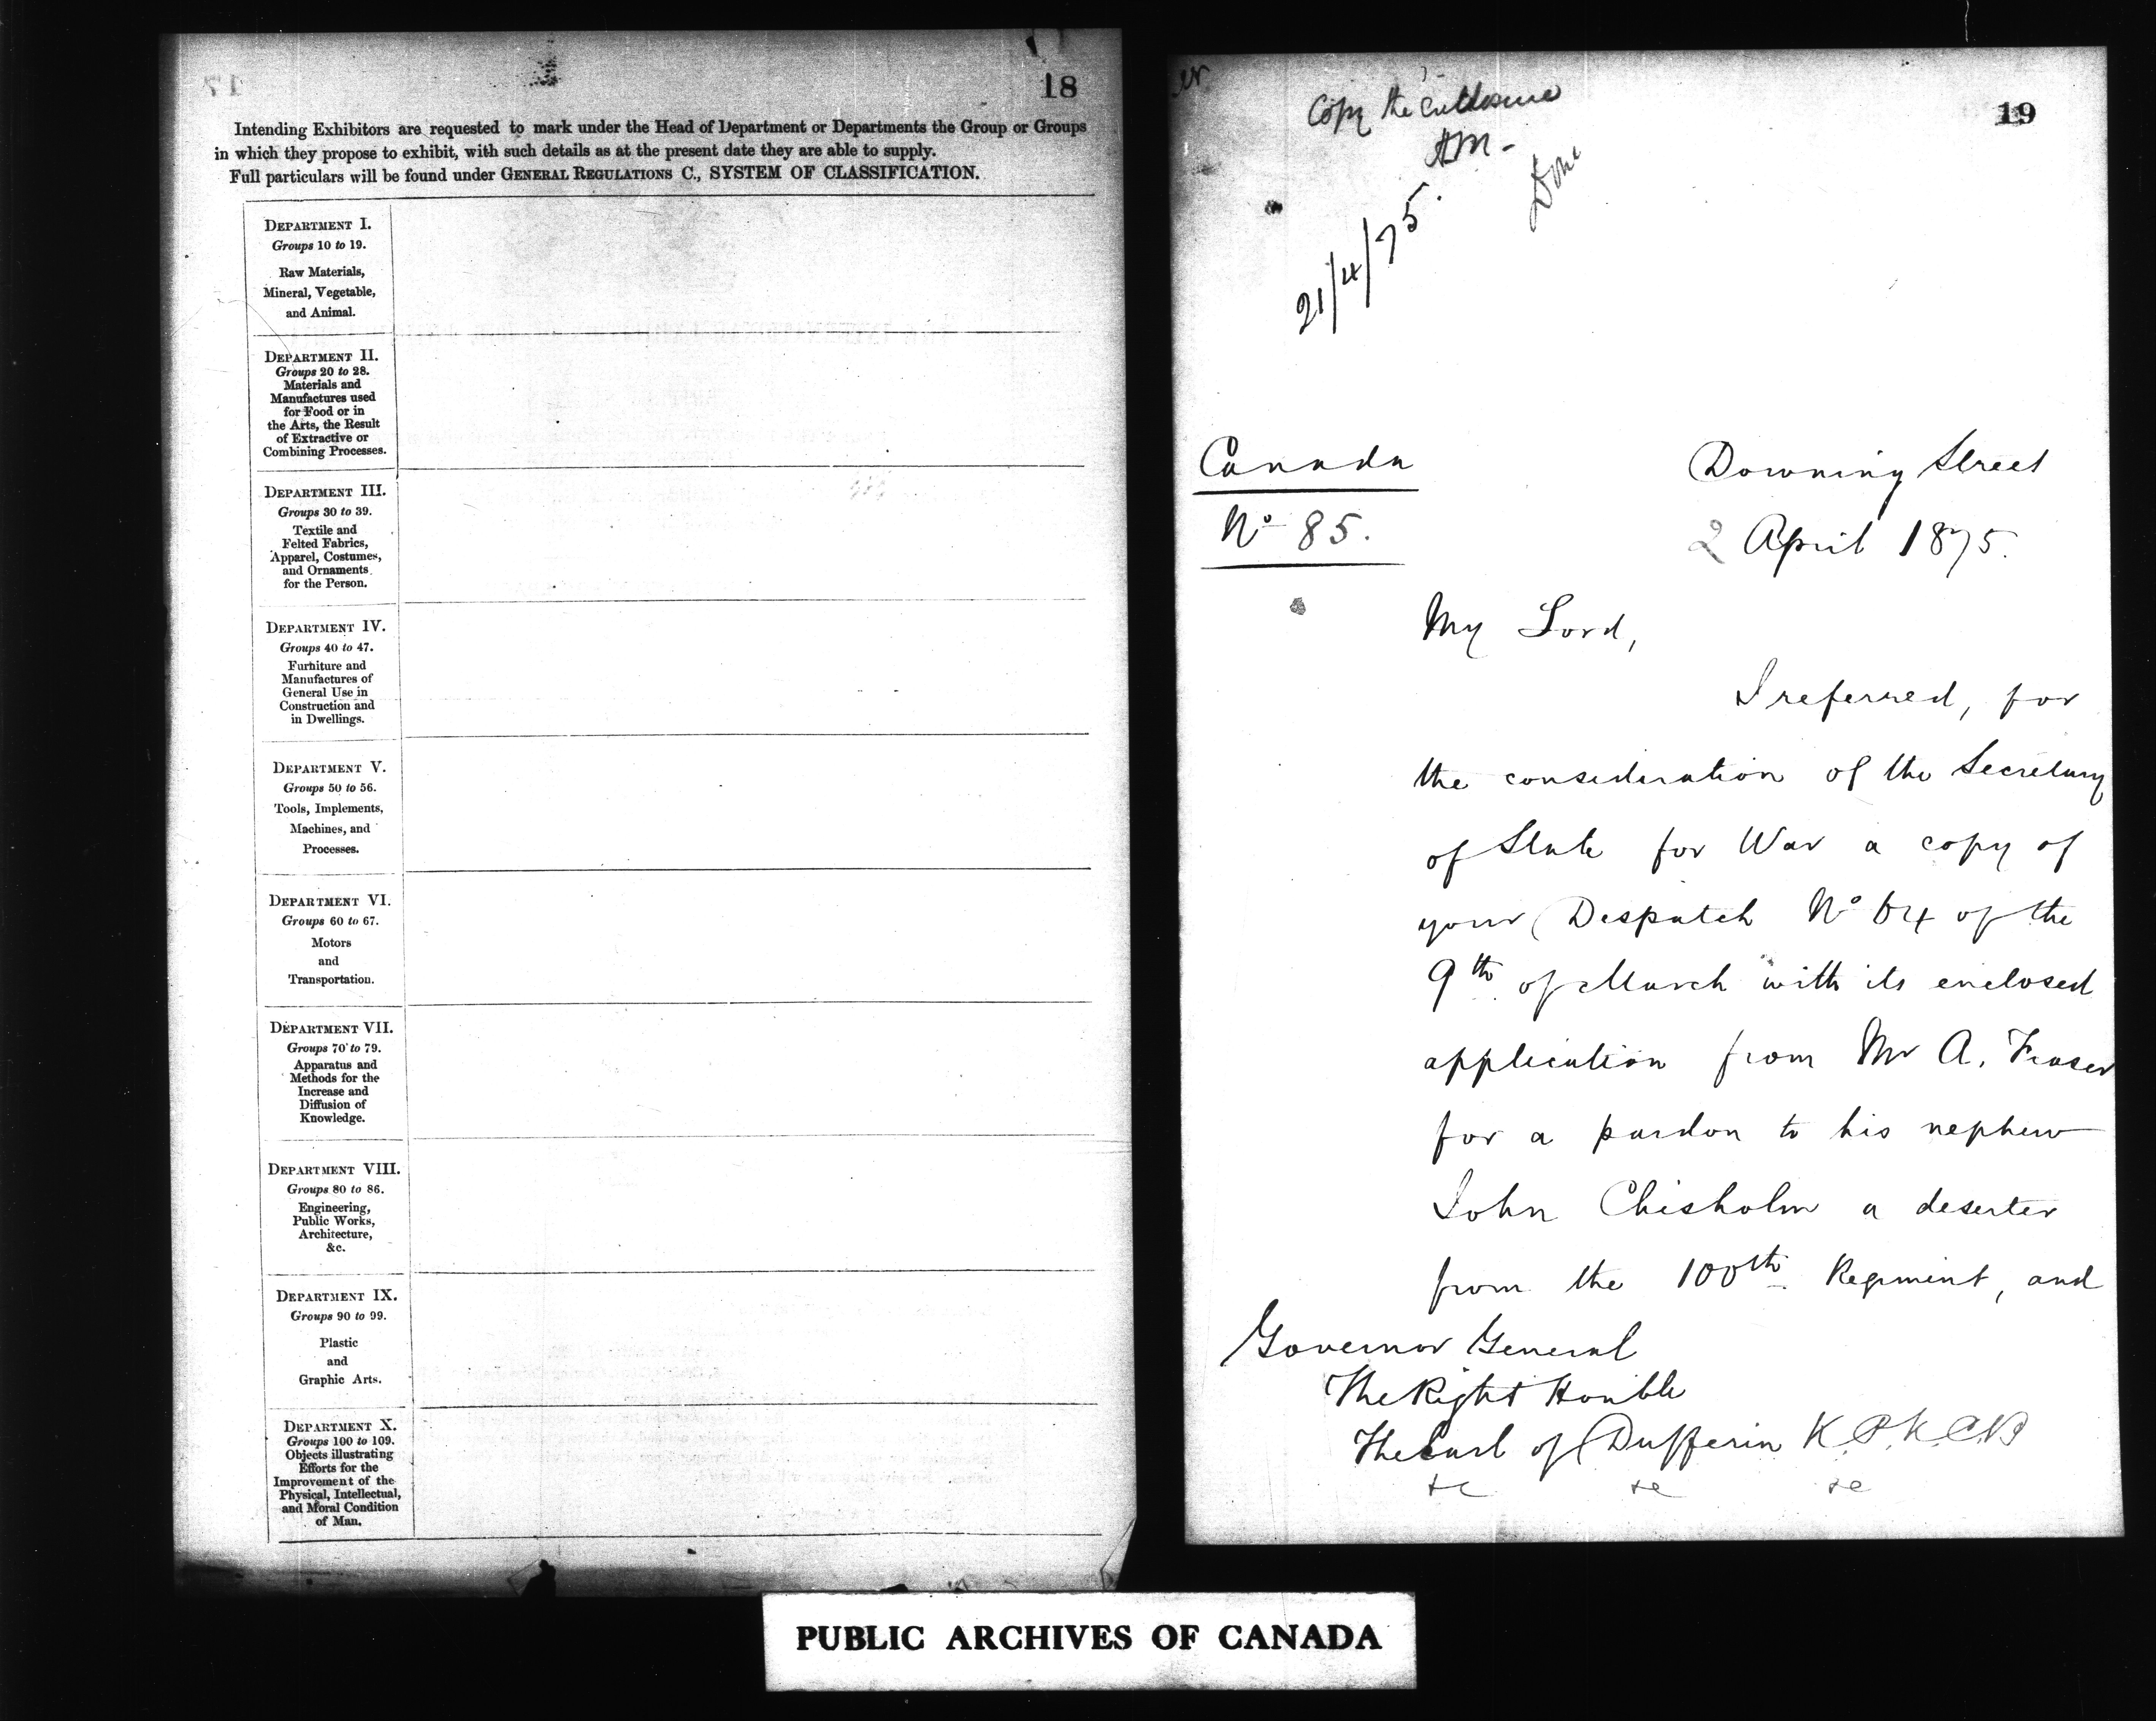 18
Intending Exhibitors are requested to mark under the Head of Department or Departments the Group or Groups
in which they propose to exhibit, with such details as at the present date they are able to supply.
Full particulars will be found under GENERAL REGULATIONS C., SYSTEM OF CLASSIFICATION.
DEPARTMENT I.
Groups 10 to 19.
Raw Materials,
Mineral, Vegetable,
and Animal.
DEPARTMENT II.
Groups 20 to 28.
Materials and
Manufactures used
for Food or in
the Arts, the Result
of Extractive or
Combining Processes.
DEPARTMENT III.
Groups 30 to 39.
Textile and
Felted Fabrics,
Apparel, Costumes,
and Ornaments
for the Person.
DEPARTMENT IV.
Groups 40 to 47.
Furniture and
Manufactures of
General Use in
Construction and
in Dwellings.
DEPARTMENT V.
Groups 50 to 56.
Tools, Implements,
Machines, and
Processes.
DEPARTMENT VI.
Groups 60 to 67.
Motors
and
Transportation.
DEPARTMENT VII.
Groups 70 to 79.
Apparatus and
Methods for the
Increase and
Diffusion of
Knowledge.
DEPARTMENT VIII.
Groups 80 to 86.
Engineering,
Public Works,
Architecture,
&c.
DEPARTMENT IX.
Groups 90 to 99.
Plastic
and
Graphic Arts.
DEPARTMENT X.
Groups 100 to 109.
Objects illustrating
Efforts for the
Improvement of the
Physical, Intellectual,
and Moral Condition
of Man.
19
Copy the enclosure
Done
21/4/75.
Canada
No 85.
Downing Street
2 April 1875.
My Lord,
I referred, for
the consideration of the Secretary
of State for War a copy of
your Despatch No 64 of the
9th of March with its enclosed
application from Mr A. Fraser
for a pardon to his nephew
John Chisholm a deserter
from the 100th Regiment, and
Governor General
The Right Honble
The Earl of Dufferin K.P.K.C.B
&c &c &c
PUBLIC ARCHIVES OF CANADA